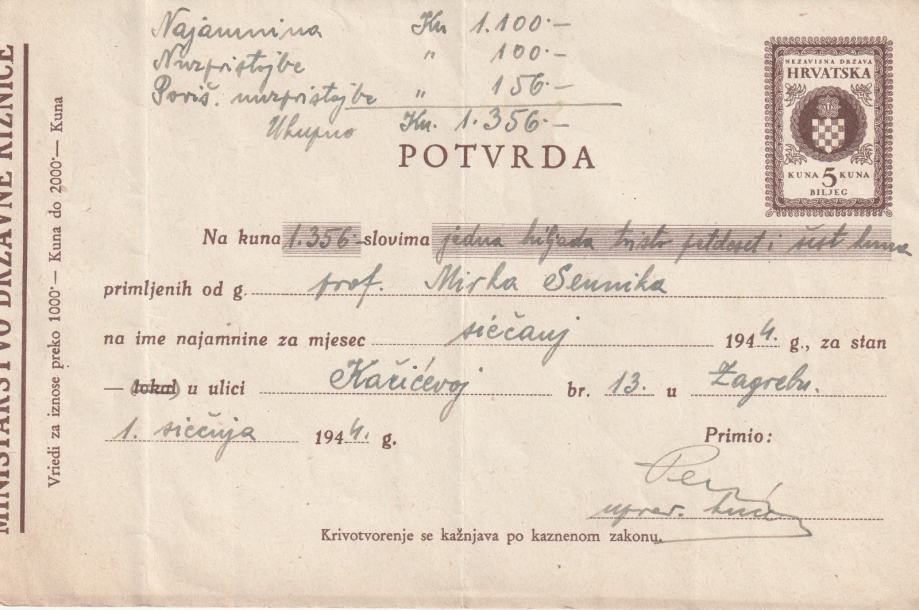 Najamnina Kn 1.100·—
Nuzpristojbe " 100·—
Poviš. nuzpristojbe " 156·—
Ukupno Kn. 1.356·—
POTVRDA
NEZAVISNA DRŽAVA
HRVATSKA
KUNA 5 KUNA
BILJEG
MINISTARSTVO DRŽAVNE RIZNICE
Vriedi za iznose preko 1000·— Kuna do 2000·— Kuna
Na kuna 1.356·— slovima jedna hiljada tristo petdeset i šest kuna
primljenih od g. prof. Mirka Sennika
na ime najamnine za mjesec siečanj 1944. g., za stan
— lokal u ulici Kačićevoj br. 13. u Zagrebu.
1. siečnja 1944. g.
Primio:
uprav. kuće
Krivotvorenje se kažnjava po kaznenom zakonu.